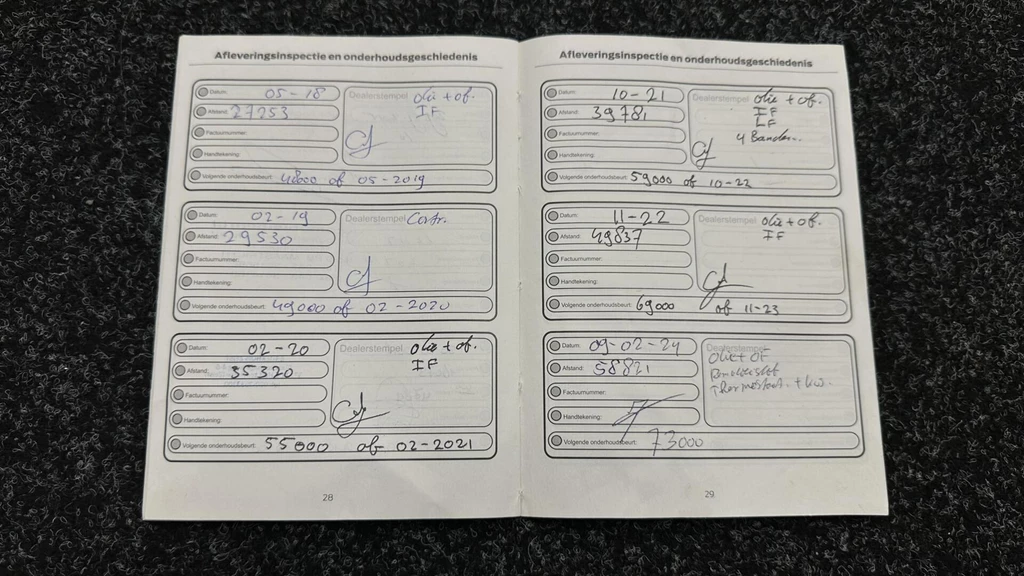 Afleveringsinspectie en onderhoudsgeschiedenis
Datum: 05-18
Afstand: 27253
Factuurnummer:
Handtekening:
Volgende onderhoudsbeurt: 48000 of 05-2019
Dealerstempel olie + of.
IF
Datum: 02-19
Afstand: 29530
Factuurnummer:
Handtekening:
Volgende onderhoudsbeurt: 49000 of 02-2020
Dealerstempel Contr.
Datum: 02-20
Afstand: 35320
Factuurnummer:
Handtekening:
Volgende onderhoudsbeurt: 55000 of 02-2021
Dealerstempel olie + of.
IF
28
Afleveringsinspectie en onderhoudsgeschiedenis
Datum: 10-21
Afstand: 39781
Factuurnummer:
Handtekening:
Volgende onderhoudsbeurt: 59000 of 10-22
Dealerstempel olie + of.
IF
LF
4 Banden.
Datum: 11-22
Afstand: 49837
Factuurnummer:
Handtekening:
Volgende onderhoudsbeurt: 69000 of 11-23
Dealerstempel olie + of.
IF
Datum: 09-02-24
Afstand: 58821
Factuurnummer:
Handtekening:
Volgende onderhoudsbeurt: 73000
Dealerstempel
olie + OF
Thermostaat + kv.
29